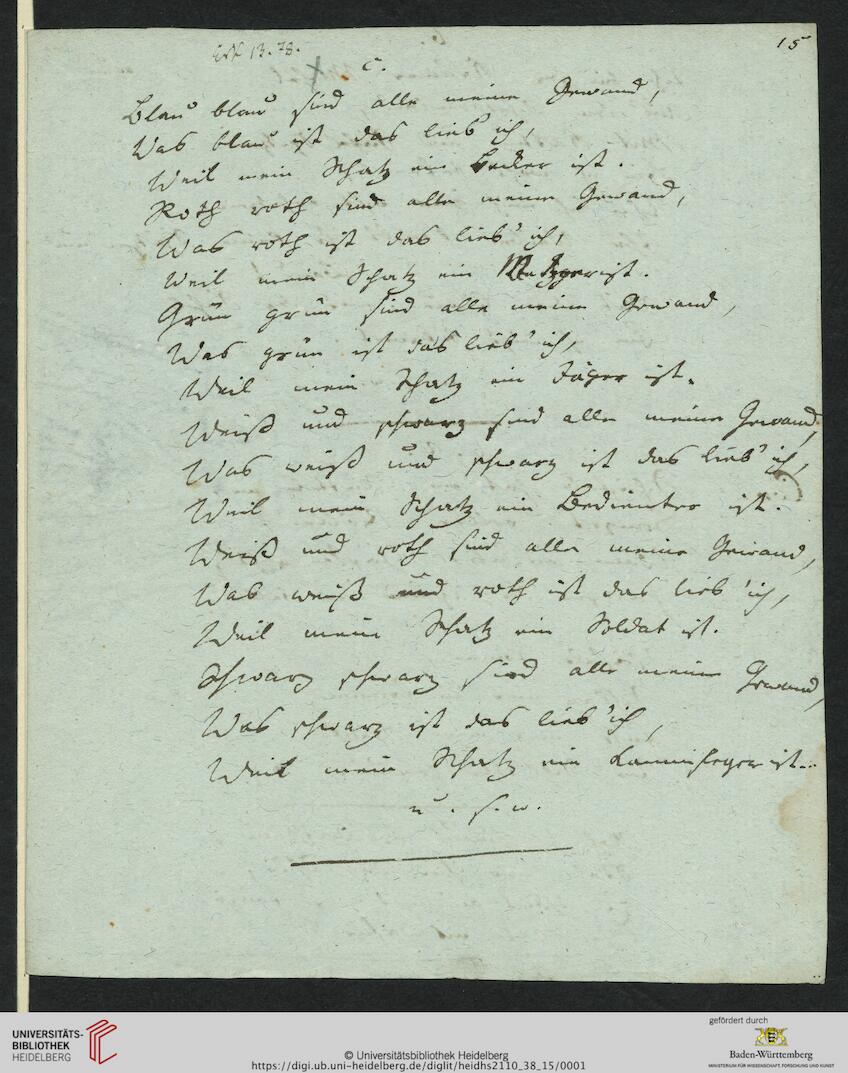 13.78.
15
c.
Blau blau sind alle meine Gewand,
Was blau ist das lieb ich,
Weil mein Schatz ein Becker ist.
Roth roth sind alle meine Gewand,
Was roth ist das lieb' ich,
Weil mein Schatz ein Metzger ist.
Grün grün sind alle meine Gewand,
Was grün ist das lieb' ich,
Weil mein Schatz ein Jäger ist.
Weiß und schwarz sind alle meine Gewand,
Was weiß und schwarz ist das lieb' ich,
Weil mein Schatz ein Bedienter ist.
Weiß und roth sind alle meine Gewand,
Was weiß und roth ist das lieb' ich,
Weil mein Schatz ein Soldat ist.
Schwarz schwarz sind alle meine Gewand,
Was schwarz ist das lieb' ich,
Weil mein Schatz ein Kaminfeger ist...
u. s. w.
UNIVERSITÄTS-
BIBLIOTHEK
HEIDELBERG
© Universitätsbibliothek Heidelberg
https://digi.ub.uni-heidelberg.de/diglit/heidhs2110_38_15/0001
gefördert durch
Baden-Württemberg
MINISTERIUM FÜR WISSENSCHAFT, FORSCHUNG UND KUNST